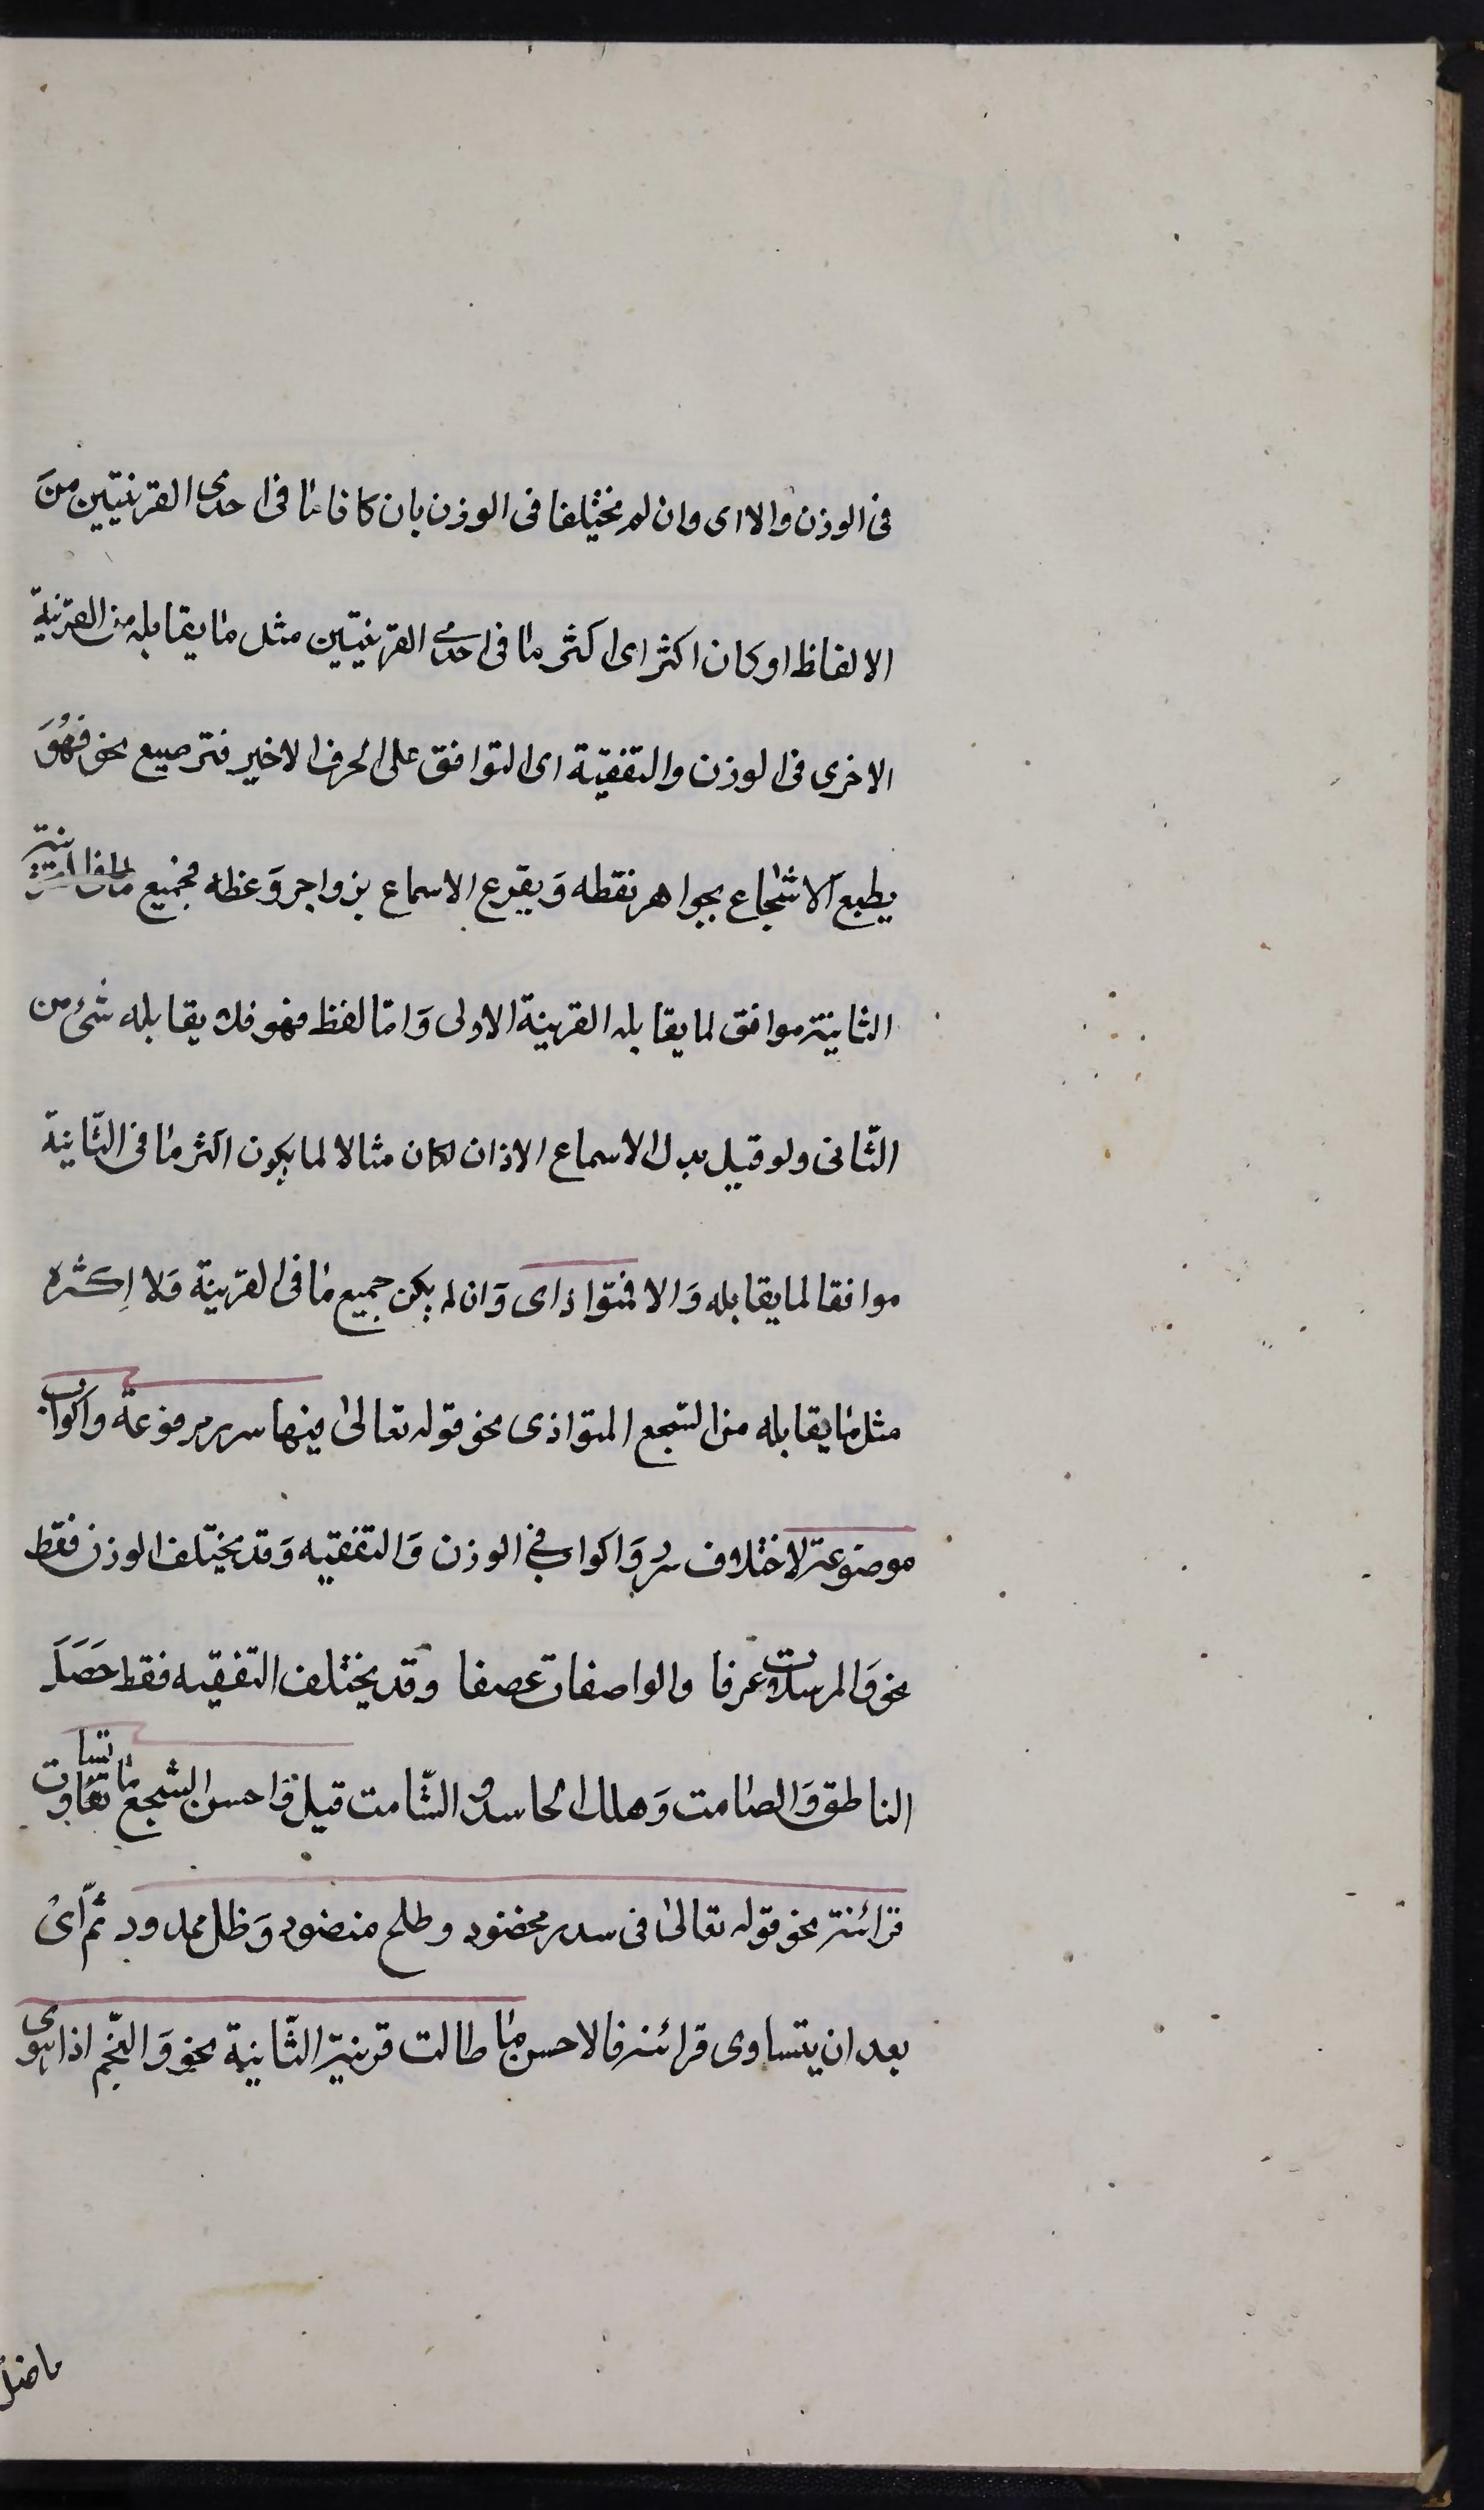 فى الوزن والا اى وان لم يختلفا فى الوزن بان كانا ما فى احدى القرينتين من
الالفاظ او كان اكثر اى اكثر ما فى احدى القرينتين مثل ما يقابله من القرينة
الاخرى فى الوزن والتقفية اى التوافق على الحرف الاخير فترصيع نحو فهُوَ
يطبع الاشجاع بجواهر نقطه وَيقرع الاسماع بزواجر وَعظه فجميع ما فى القرينة
الثانية موافق لما يقابله القرينة الاولى وَاما لفظ فهو فلا يقابله شئ من
الثانى ولو قيل بدل الاسماع الاذان لكان مثالا لما يكون اكثر ما فى الثانية
موافقا لما يقابله وَالا فمتواذاى وَان لم يكن جميع ما فى القرينة وَلا اكثره
مثل ما يقابله من السجع المتواذى نحو قوله تعالى فيها سرر مرفوعة واكواب
موضوعة لاختلاف سرر وَاكواب فى الوزن وَالتقفيه وَقد يختلف الوزن فقط
نحو وَالمرسلات عرفا والواصفات عصفا وقد يختلف التقفيه فقط حَصَلَ
الناطق وَالصامت وَهلك الحاسد والشامت قيل وَاحسن السجع ما تساوت
قرائنة نحو قوله تعالى فى سدر مخضود وطلح منضود وَظل ممدود ثم اى
بعد ان يتساوى قرائنه فالاحسن ما طالت قرينة الثانية نحو وَالنّجم اذا هوى
ماضل